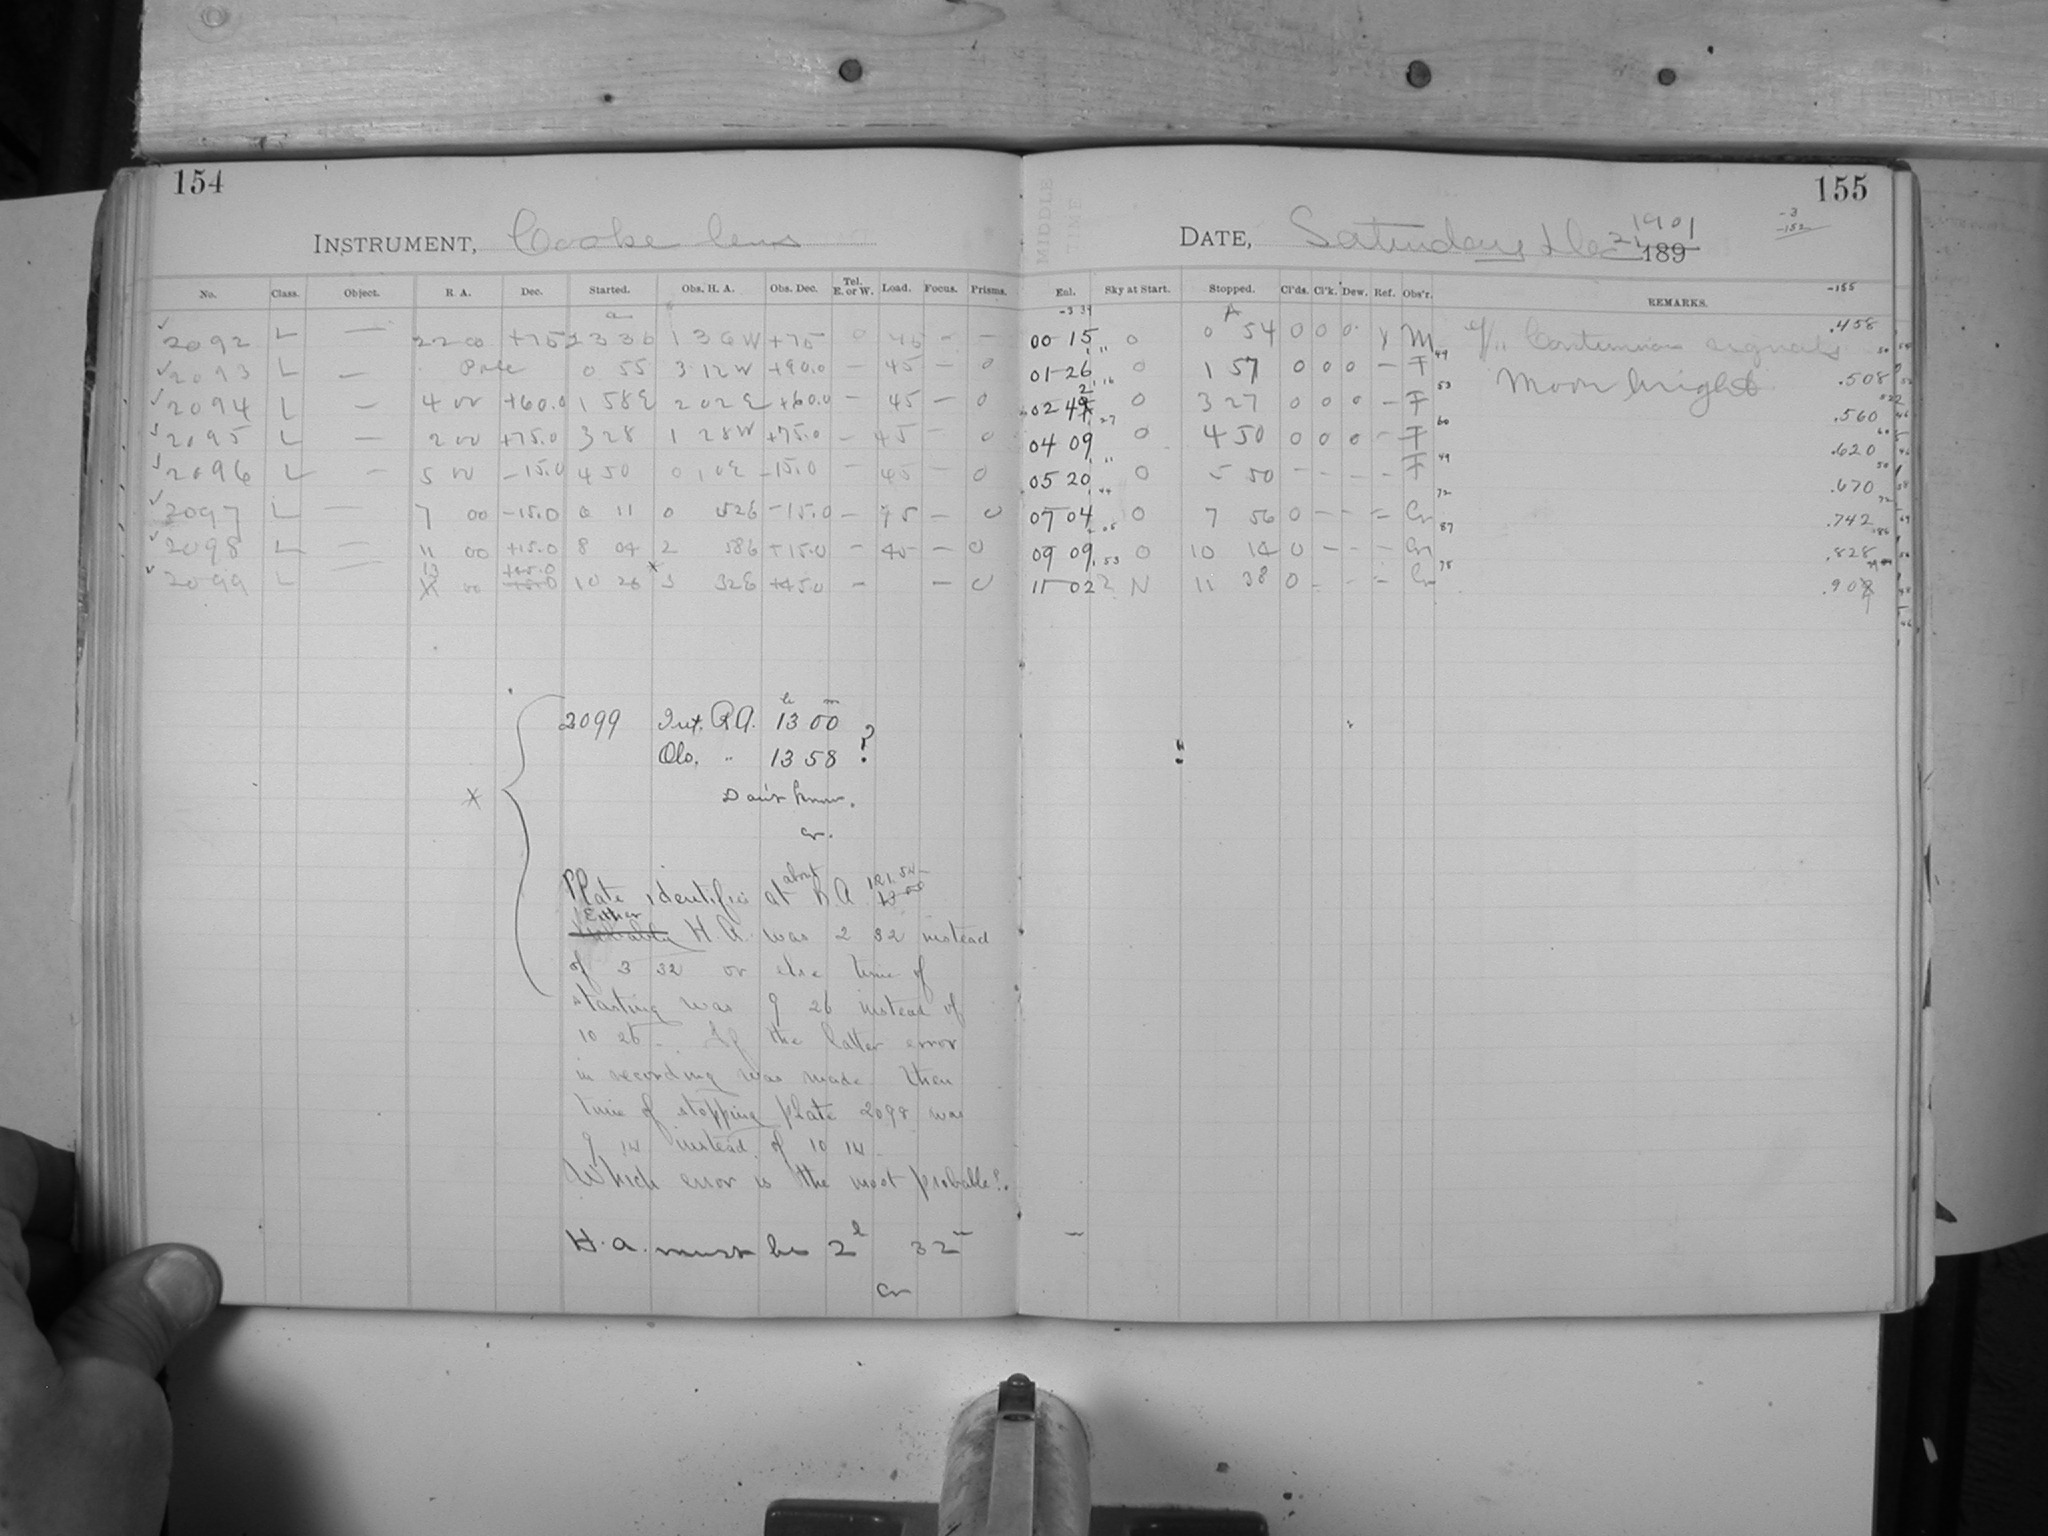 154
155
INSTRUMENT, Cooke lens
DATE, Saturday Dec 21 1901 189
-3
-152
-155
No. Class. Object. R. A. Dec. Started. Obs. H. A. Obs. Dec. Tel. E. or W. Load. Focus. Prisms. Enl. Sky at Start. Stopped. Cl'ds. Cl'k. Dew. Ref. Obs'r. REMARKS.
MIDDLE TIME
2092 L — 22 00 +75 23 36 1 36 W +75 0 45 - — 00 15 0 0 54 0 0 0 y M Continuous signals .458
2093 L — Pole 0 55 3 12 W +90.0 — 45 — 0 01 26 0 1 57 0 0 0 — F Moon bright .508
2094 L — 4 00 +60.0 1 58 2 02 E +60.0 — 45 — 0 02 42 0 3 27 0 0 0 — F .560
2095 L — 2 00 +75.0 3 28 1 28 W +75.0 — 45 — 0 04 09 0 4 50 0 0 0 — F .620
2096 L — 5 00 -15.0 4 50 0 10 E -15.0 — 45 — 0 05 20 0 5 50 — — — — F .670
2097 L — 7 00 -15.0 6 11 0 52 E -15.0 — 45 — 0 07 04 0 7 56 0 — — = Cr .742
2098 L — 11 00 +15.0 8 04 2 58 E +15.0 — 45 — 0 09 09 0 10 14 0 — — — Cr .828
2099 L — 13 00 +45.0 10 26 * 3 32 E +45.0 — — 0 11 02 ? N 11 38 0 — — = Cr .909
2099 Int. R.A. 13 h 00 m
Obs. " 13 58 ?
Don't know.
Cr.
*
Plate identifies at about R A 12 h 58 m
Either H. A. was 2 32 instead
of 3 32 or else time of
starting was 9 26 instead of
10 26 — If the latter error
in recording was made then
time of stopping plate 2098 was
9 14 instead of 10 14
Which error is the most probable?.
H. A. must be 2 h 32 m
Cr